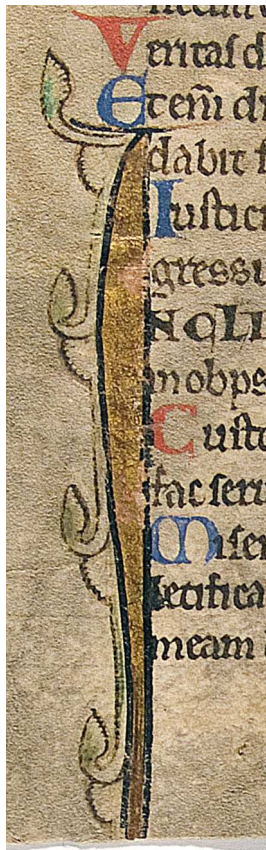 Veritas d
Etem̄ dn
dabit f
Iustici
gressu
NCLI
m obps
Custo
fac seru
Miser
letifica
meam